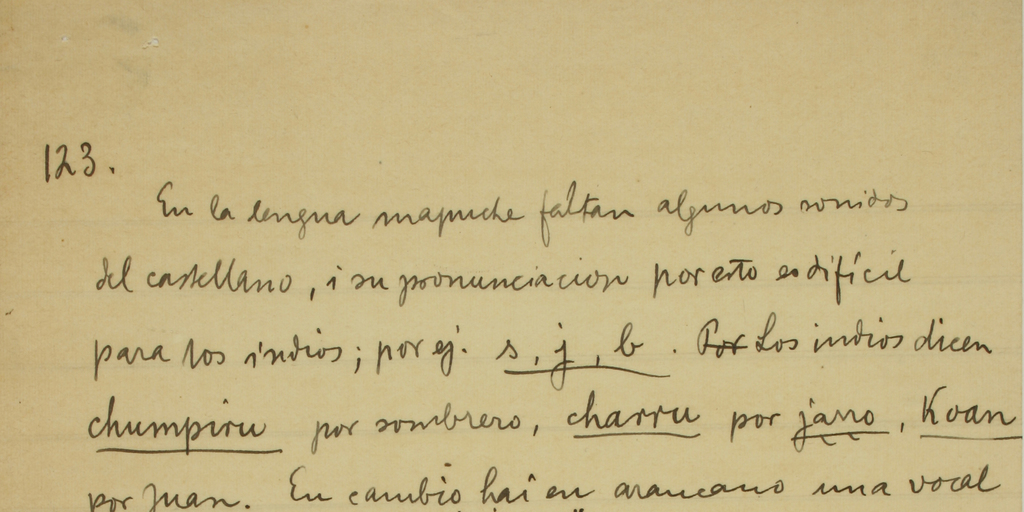 123.
En la lengua mapuche faltan algunos sonidos
del castellano, i su pronunciacion por esto es difícil
para los indios; por ej. s, j, b. Por Los indios dicen
chumpiru por sombrero, charru por jarro, Koan
por Juan. En cambio hai en araucano una vocal